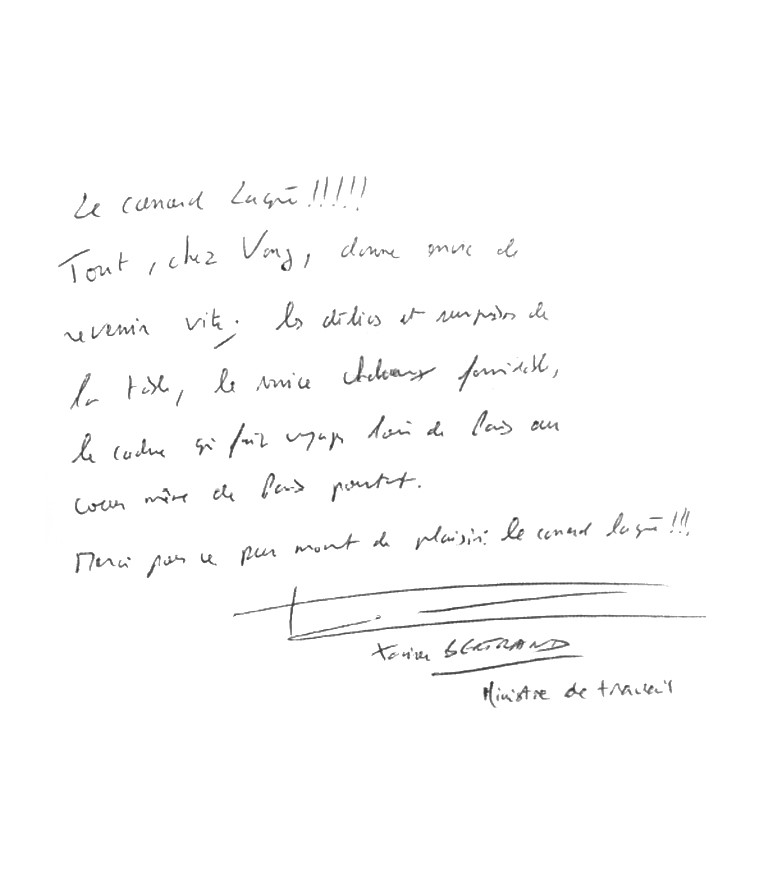 Le canard Laqué !!!!!
Tout, chez Vong, donne envie de
revenir vite : les délices et surprises de
la table, le service chaleureux formidable,
le cadre qui fait voyager loin de Paris au
coeur même de Paris pourtant.
Merci pour ce pur moment de plaisir : le canard laqué !!!
Xavier BERTRAND
Ministre de travail